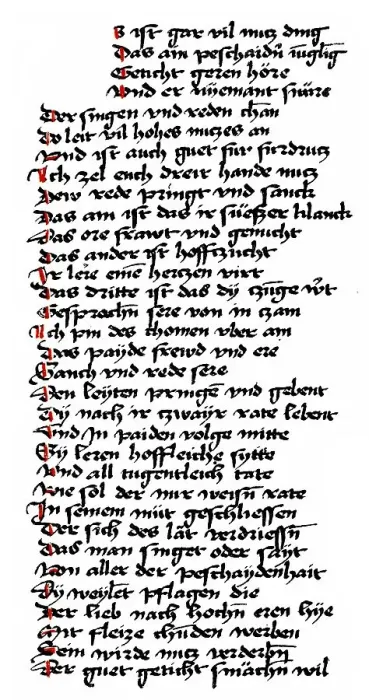 S ist gar vil nucz ding
Das ain peschaidn̄ iu̅gli̅g
Geticht geren höre
Vnd er nyemant swäre
Der singen vnd reden chan
Do leit vil hohes nuczes an
Vnd ist auch guet fur furdrucz
Ich zel euch dreir hande nucz
Dew rede pringt vnd sanck
Das ain ist das ir süeſzer klanck
Das ore frawt vnd gemücht
Das ander ist hoffczücht
Ir lere eine herczen virt
Das dritte ist das dy czu̅ge wͦt
Gesprochn̄ sere von in czam
Ich pin des chomen vber ain
Das payde frewd vnd ere
Sanch vnd rede sere
Den leẅten pringe̅ vnd gebent
Dy nach ir czwaÿr rate lebent
Vnd In paiden volge mitte
Sy leren hoffleiche sytte
Vnd all tugentleich tate
Wie sol der nur weisn̄ rate
In seinem müt geschliessen
Der sich des lät verdriessn̄
Das man singet oder saÿt
Von aller der peschaydenhait
Dy weylet pflagen die
Der lieb nach hochn̄ eren hye
Mit fleize chu̅den werben
Sein wirde mucz verderbn̄
Der guet geticht smächn̄ wil